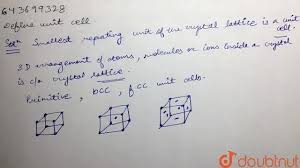 643699328
Define unit cell.
Solⁿ Smallest repeating unit of the crystal lattice is a unit cell.
3D arrangement of atoms, molecules or ions inside a crystal
is c/a crystal lattice.
Primitive, bcc, fcc unit cells.
doubtnut